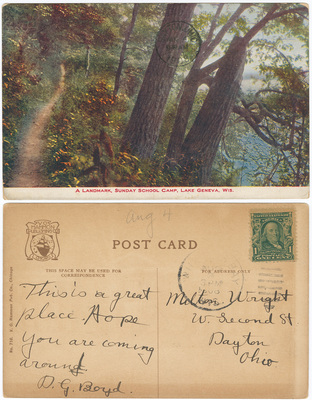 A LANDMARK, SUNDAY SCHOOL CAMP, LAKE GENEVA, WIS.
Aug 4
POST CARD
THIS SPACE MAY BE USED FOR
CORRESPONDENCE
FOR ADDRESS ONLY
This is a great
place Hope
you are coming
around
D. G. Boyd.
Milton Wright
W. Second St
Dayton
Ohio